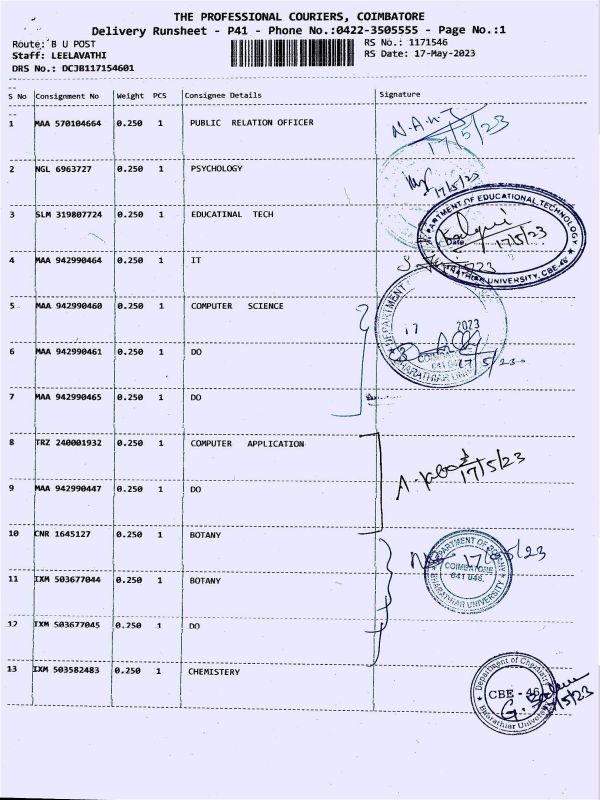 THE PROFESSIONAL COURIERS, COIMBATORE
Delivery Runsheet - P41 - Phone No.:0422-3505555 - Page No.:1
Route: B U POST
RS No.: 1171546
Staff: LEELAVATHI
RS Date: 17-May-2023
DRS No.: DCJB117154601
S No Consignment No Weight PCS Consignee Details Signature
1 MAA 570104664 0.250 1 PUBLIC RELATION OFFICER
N.A.N.J 17/5/23
2 NGL 6963727 0.250 1 PSYCHOLOGY
17/5/23
3 SLM 319807724 0.250 1 EDUCATINAL TECH
DEPARTMENT OF EDUCATIONAL TECHNOLOGY
Date. 17/5/23
BHARATHIAR UNIVERSITY, CBE-46
4 MAA 942990464 0.250 1 IT
5 MAA 942990460 0.250 1 COMPUTER SCIENCE
DEPARTMENT
17 2023
6 MAA 942990461 0.250 1 DO
17/5/23
BHARATHIAR UNI
7 MAA 942990465 0.250 1 DO
8 TRZ 240001932 0.250 1 COMPUTER APPLICATION
17/5/23
9 MAA 942990447 0.250 1 DO
10 CNR 1645127 0.250 1 BOTANY
17/5/23
DEPARTMENT OF BOTANY
COIMBATORE
641 046.
BHARATHIAR UNIVERSITY
11 IXM 503677044 0.250 1 BOTANY
12 IXM 503677045 0.250 1 DO
13 IXM 503582483 0.250 1 CHEMISTERY
Department of Chemistry
CBE - 46
17/5/23
Bharathiar University